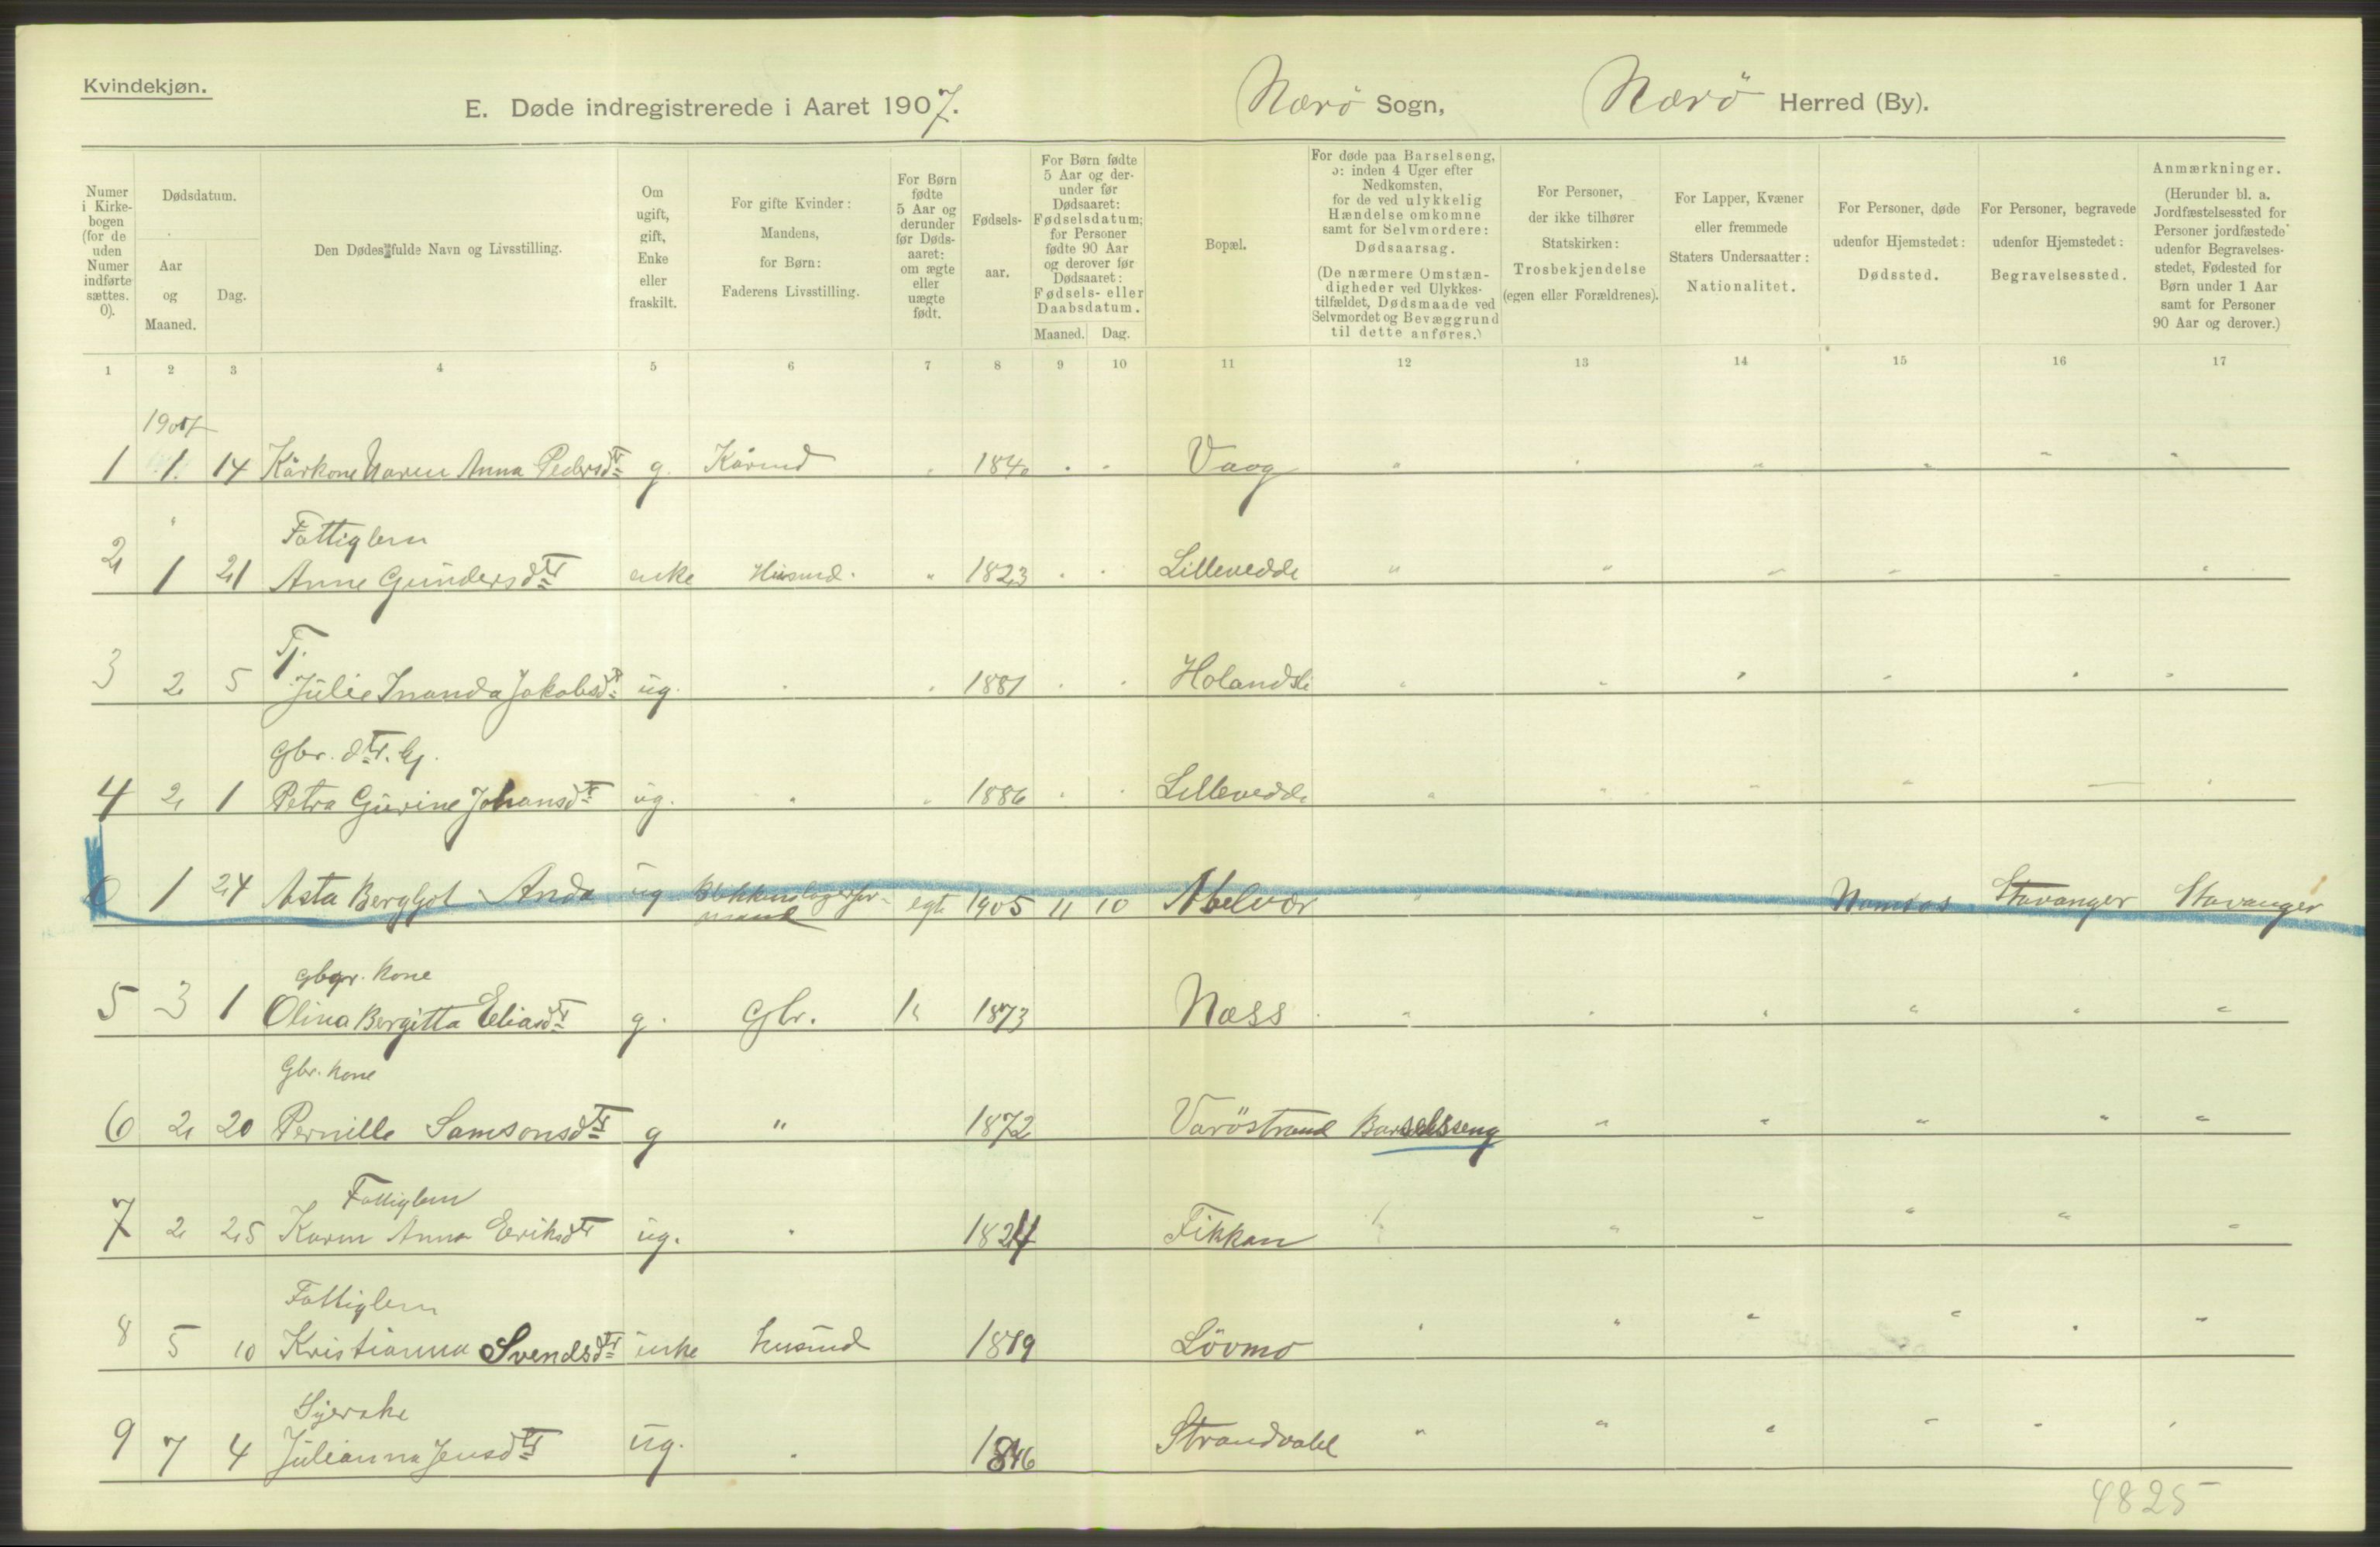 Kvindekjøn.
E. Døde indregistrerede i Aaret 1907. Nærö Sogn, Nærö Herred (By).
Numer i Kirke-bogen (for de uden Numer indførte sættes. 0).
Dødsdatum.
Aar og Maaned.
Dag.
Den Dødes fulde Navn og Livsstilling.
Om ugift, gift, Enke eller fraskilt.
For gifte Kvinder: Mandens, for Børn: Faderens Livsstilling.
For Børn fødte 5 Aar og derunder før Døds-aaret: om ægte eller uægte født.
Fødsels-aar.
For Børn fødte 5 Aar og der-under før Dødsaaret: Fødselsdatum; for Personer fødte 90 Aar og derover før Dødsaaret: Fødsels- eller Daabsdatum.
Maaned. Dag.
Bopæl.
For døde paa Barselseng, ɔ: inden 4 Uger efter Nedkomsten, for de ved ulykkelig Hændelse omkomne samt for Selvmordere: Dødsaarsag.
(De nærmere Omstæn-digheder ved Ulykkes-tilfældet, Dødsmaade ved Selvmordet og Bevæggrund til dette anføres.)
For Personer, der ikke tilhører Statskirken: Trosbekjendelse (egen eller Forældrenes).
For Lapper, Kvæner eller fremmede Staters Undersaatter: Nationalitet.
For Personer, døde udenfor Hjemstedet: Dødssted.
For Personer, begravede udenfor Hjemstedet: Begravelsessted.
Anmærkninger.
(Herunder bl. a. Jordfæstelsessted for Personer jordfæstede udenfor Begravelses-stedet, Fødested for Børn under 1 Aar samt for Personer 90 Aar og derover.)
1 2 3 4 5 6 7 8 9 10 11 12 13 14 15 16 17
1907
1 1 14 Kårkone Karen Anna Pedersdtr g. Kårmd " 1840 " " Vaag " " " " " "
"
Fattiglem
2 1 21 Anne Gundersdtr enke Husmd. " 1823 " " Lillevedde " " " " " "
Tj.
3 2 5 Julie Inanda Jakobsdtr ug. " " 1881 " " Holandsli " " " " " "
Gbr. dtr.
4 2 1 Petra Gurine Johansdtr ug. " " 1886 " " Lillevedde " " " " — "
0 1 24 Asta Bergljot Anda ug Blikkenslagerfor-
mand egte 1905 11 10 Abelvær " " Namsos Stavanger Stavanger
Gbgr. Kone
5 3 1 Olina Bergitta Eliasdtr g. Gbr. 1873 Næss " " " " " "
Gbr. kone
6 2 20 Pernille Samsonsdtr g " 1872 Varöstrand Barselsseng " " " " "
Fattiglem
7 2 25 Karen Anna Eriksdtr ug. " 1824 Fikkan " " " " " "
Fattiglem
8 5 10 Kristianna Svendsdtr enke husmd 1819 Lövmo " " " " " "
Syerske
9 7 4 Julianna Jensdtr ug. " 1846 Strandvald " " " " " "
4825